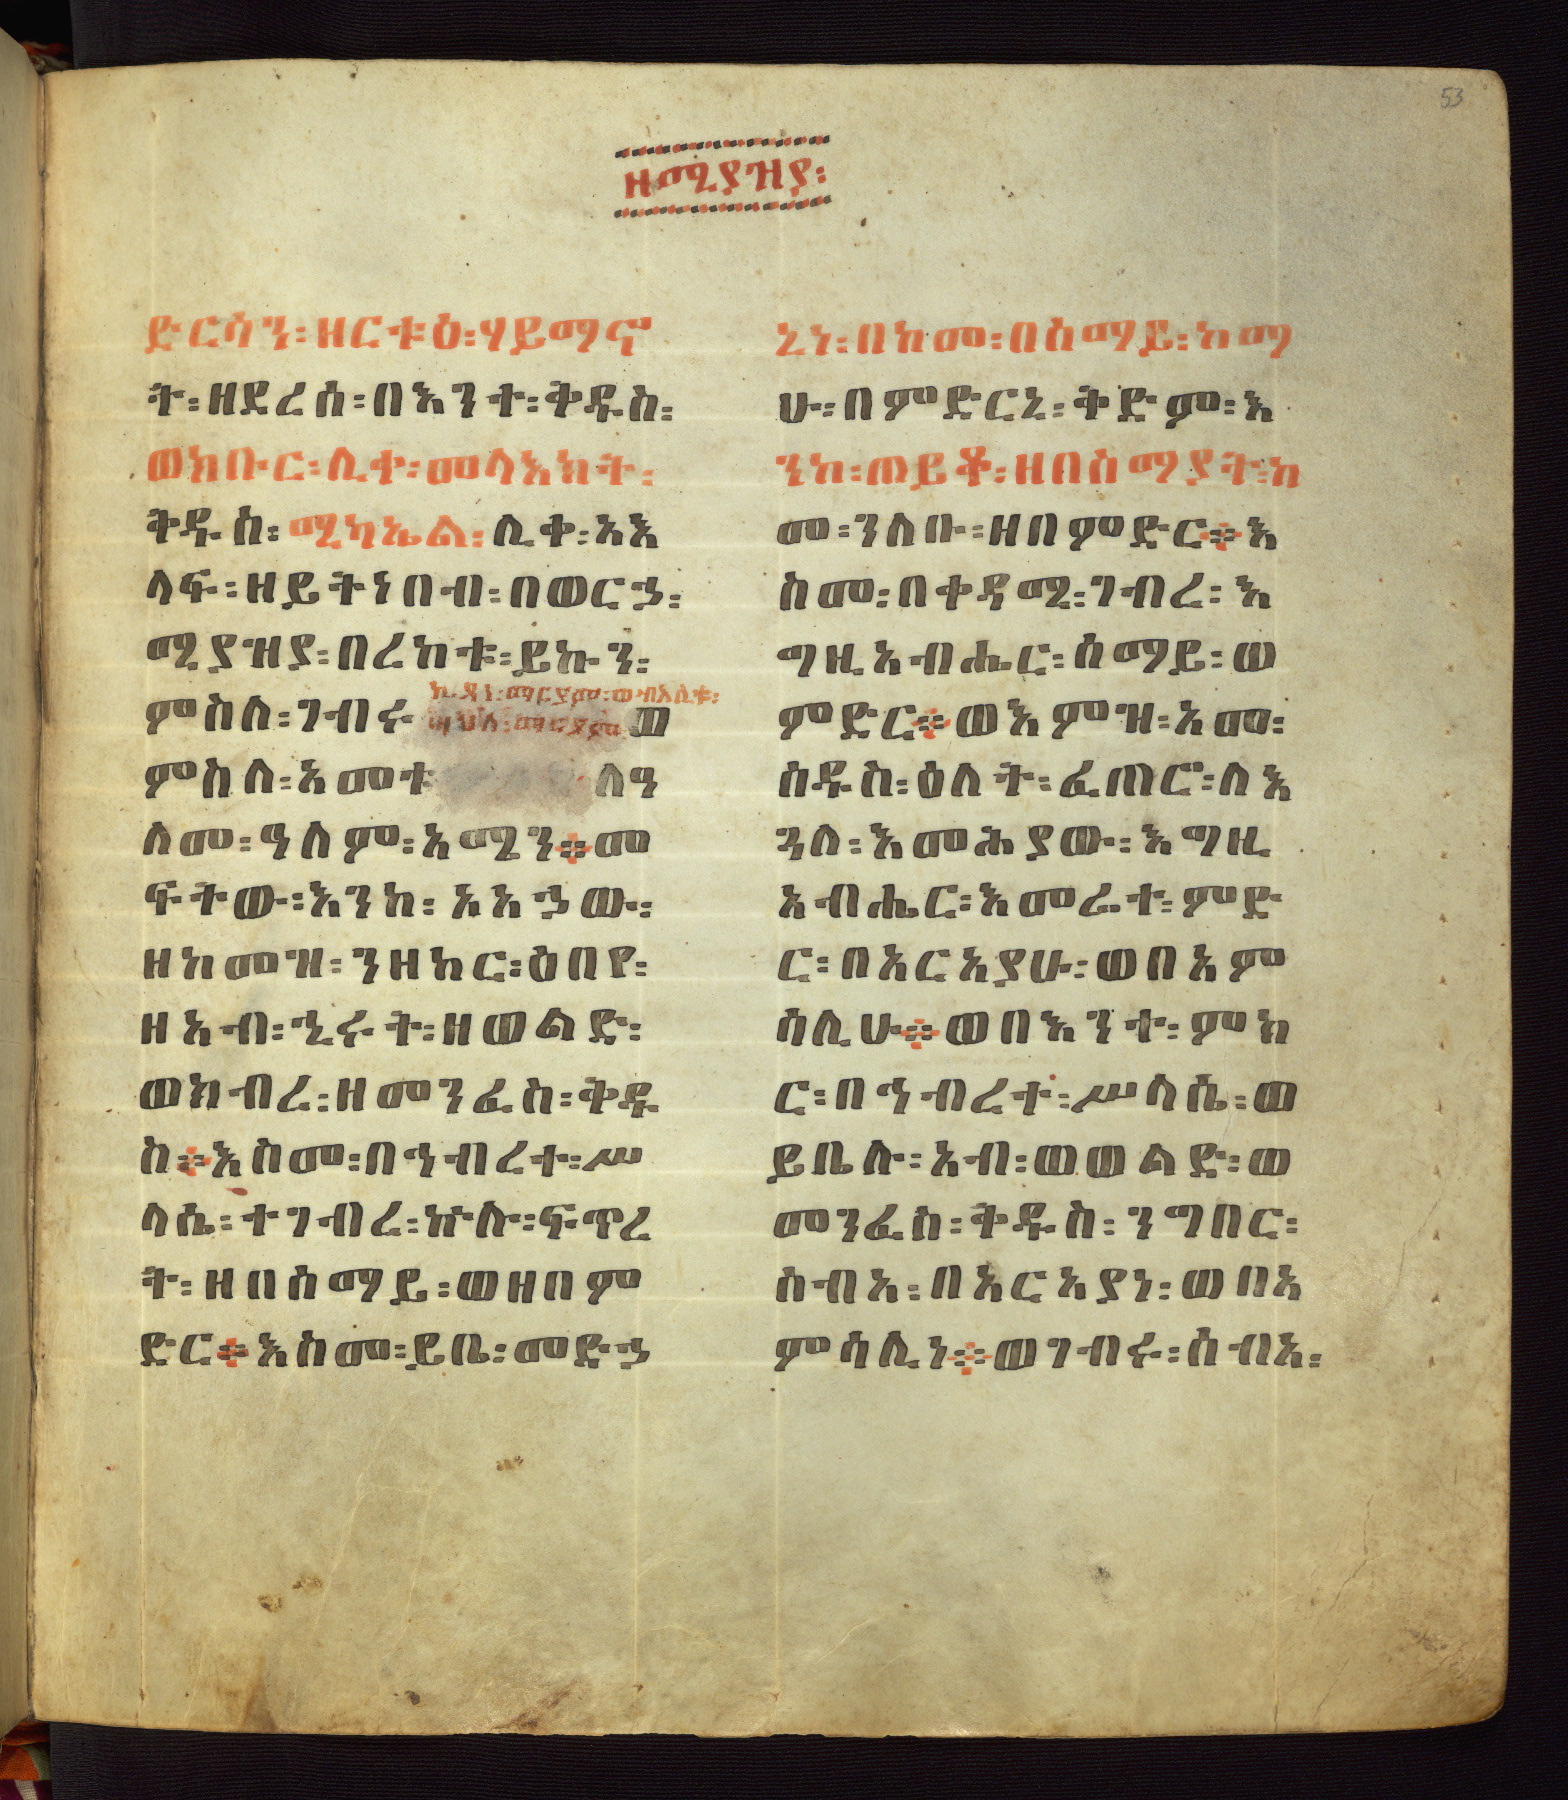 53
ዘሚያዝያ፡
ድርሳን፡ዘርቱዕ፡ሃይማኖ
ት፡ዘደረሰ፡በእንተ፡ቅዱስ፡
ወክቡር፡ሊቀ፡መላእክት፡
ቅዱስ፡ሚካኤል፡ሊቀ፡አእ
ላፍ፡ዘይትነበብ፡በወርኃ፡
ሚያዝያ፡በረከቱ፡ይኩን፡
ኪዳነ፡ማርያም፡ወብእሲቱ፡
ምስለ፡ገብሩ ሣህለ፡ማርያም ወ
ምስለ፡አመቱ ለዓ
ለመ፡ዓለም፡አሜን፨መ
ፍትው፡እንከ፡አኀው፡
ዘከመዝ፡ንዘከር፡ዕበየ፡
ዘአብ፡ኂሩት፡ዘወልድ፡
ወክብረ፡ዘመንፈስ፡ቅዱ
ስ፨እስመ፡በኅብረተ፡ሥ
ላሴ፡ተገብረ፡ኵሉ፡ፍጥረ
ት፡ዘበሰማይ፡ወዘበም
ድር፨እስመ፡ይቤ፡መድኃ
ኒነ፡በከመ፡በሰማይ፡ከማ
ሁ፡በምድርኒ፡ቅድም፡እ
ንከ፡ጠይቆ፡ዘበሰማያት፡ከ
መ፡ንለቡ፡ዘበምድር፨እ
ስመ፡በቀዳሚ፡ገብረ፡እ
ግዚአብሔር፡ሰማይ፡ወ
ምድር፨ወእምዝ፡አመ፡
ሰዱስ፡ዕለት፡ፈጠሮ፡ለእ
ጓለ፡እመሕያው፡እግዚ
አብሔር፡እመሬተ፡ምድ
ር፡በአርአያሁ፡ወበአም
ሳሊሁ፨ወበእንተ፡ምክ
ር፡በኅብረተ፡ሥላሴ፡ወ
ይቤሉ፡አብ፡ወወልድ፡ወ
መንፈስ፡ቅዱስ፡ንግበር፡
ሰብአ፡በአርአያነ፡ወበአ
ምሳሊነ፨ወገብሩ፡ሰብአ፡